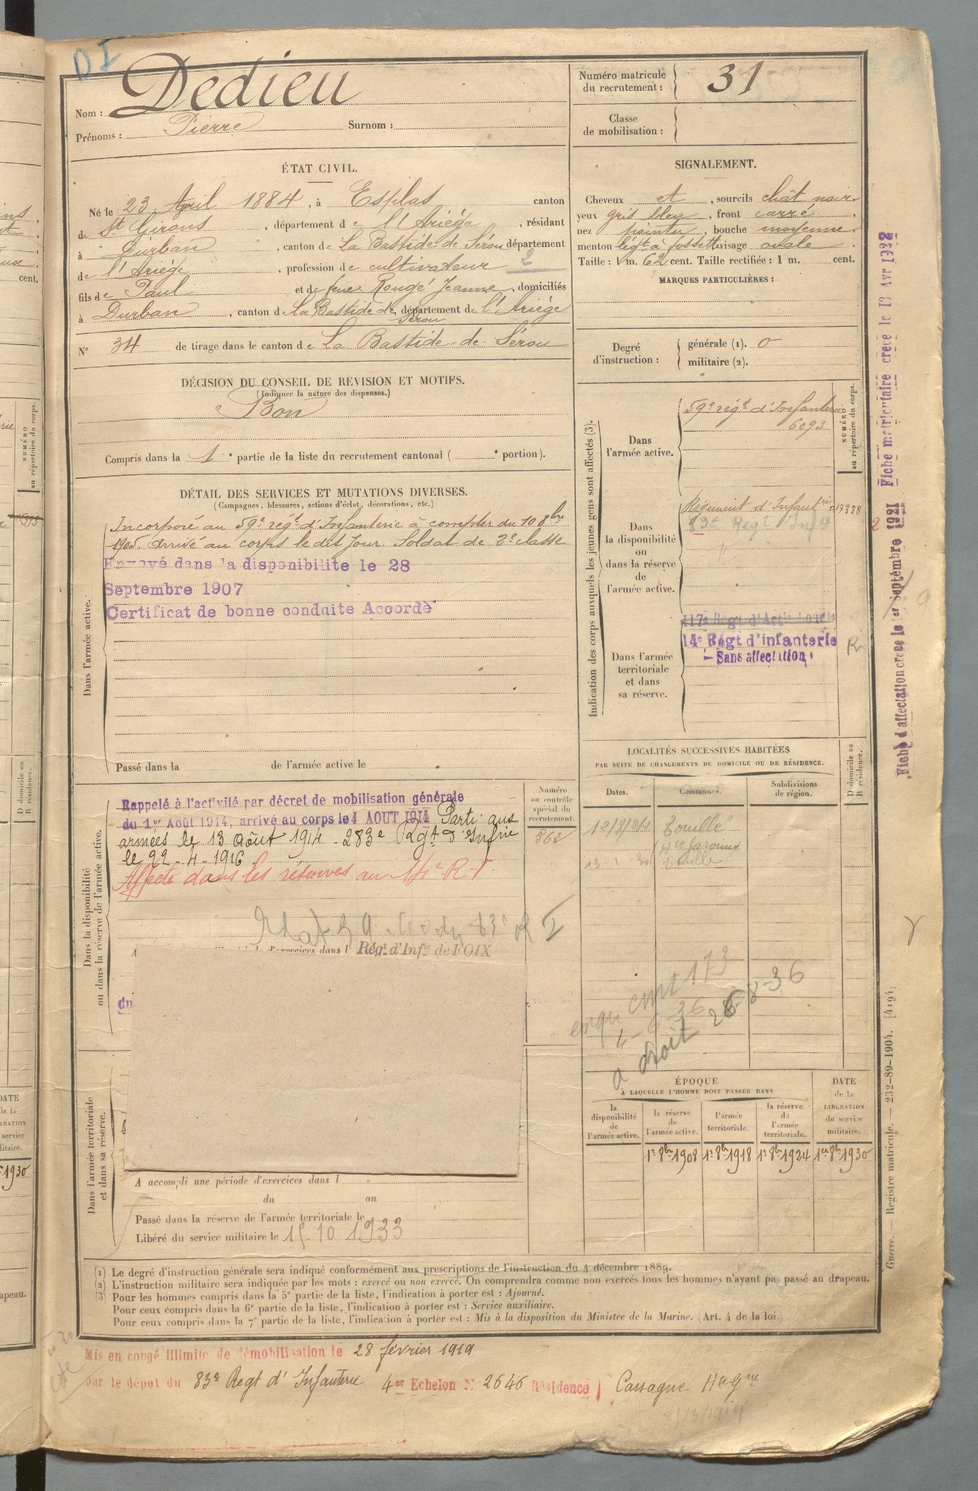 DI
Nom : Dedieu
Prénoms : Pierre Surnom :
Numéro matricule du recrutement : 31
Classe de mobilisation :
ÉTAT CIVIL.
Né le 23 Avril 1884, à Esplas canton
de St Girons, département de l'Ariège, résidant
à Durban, canton de La Bastide de Sérou département
de l'Ariège, profession de cultivateur 2
fils de Paul et de feue Rougé Jeanne, domiciliés
à Durban, canton de La Bastide de Sérou, département de l'Ariège
N° 34 de tirage dans le canton de La Bastide de Sérou
SIGNALEMENT.
Cheveux et, sourcils chât noir
yeux gris bleu, front carré
nez pointu, bouche moyenne
menton à fossette visage ovale
Taille : 1 m. 62 cent. Taille rectifiée : 1 m. cent.
MARQUES PARTICULIÈRES :
Degré d'instruction : générale (1). 0
militaire (2).
DÉCISION DU CONSEIL DE REVISION ET MOTIFS.
(Indiquer la nature des dispenses.)
Bon
Compris dans la 1e partie de la liste du recrutement cantonal ( e portion).
DÉTAIL DES SERVICES ET MUTATIONS DIVERSES.
(Campagnes, blessures, actions d'éclat, décorations, etc.)
Dans l'armée active.
Incorporé au 59e régt d'Infanterie à compter du 10 8bre
1905. Arrivé au corps le dit jour. Soldat de 2e classe
Envoyé dans la disponibilité le 28
Septembre 1907
Certificat de bonne conduite Accordé
Passé dans la de l'armée active le
Indication des corps auxquels les jeunes gens sont affectés (3).
NUMÉRO au répertoire du corps.
Dans l'armée active.
59e régt d'Infanterie
6093
Dans la disponibilité ou dans la réserve de l'armée active.
Régiment d'Infanterie
83e Régt Inf
Dans l'armée territoriale et dans sa réserve.
117e Régt d'Artie Lourde
14e Régt d'infanterie R
- Sans affectation
Fiche d'affectation créée le 1er Septembre 1921 Fiche matriculaire créée le 12 Avr 1922
Dans la disponibilité ou dans la réserve de l'armée active.
Rappelé à l'activité par décret de mobilisation générale
du 1er Août 1914, arrivé au corps le 4 AOUT 1914 Parti aux
armées le 13 Août 1914 - 283e Rgt d'Infrie
le 22-4-1916
Affecté dans les réserves au 14e R.I.
Régt d'Infie de FOIX
du
Numéro au contrôle spécial du recrutement.
LOCALITÉS SUCCESSIVES HABITÉES
PAR SUITE DE CHANGEMENTS DE DOMICILE OU DE RÉSIDENCE.
Dates. Communes. Subdivisions de région. D domicile ou R résidence.
à droit 26-8-36
ÉPOQUE
À LAQUELLE L'HOMME DOIT PASSER DANS
la disponibilité de l'armée active.
la réserve de l'armée active.
l'armée territoriale.
la réserve de l'armée territoriale.
DATE de la LIBÉRATION du service militaire.
1er 8bre 1908 1er 8bre 1918 1er 8bre 1924 1er 8bre 1930
Dans l'armée territoriale et dans sa réserve.
A accompli une période d'exercices dans l
du au
Passé dans la réserve de l'armée territoriale le
Libéré du service militaire le 15.10 1933
(1) Le degré d'instruction générale sera indiqué conformément aux prescriptions de l'instruction du 4 décembre 1889.
(2) L'instruction militaire sera indiquée par les mots : exercé ou non exercé. On comprendra comme non exercés tous les hommes n'ayant pas passé au drapeau.
(3) Pour les hommes compris dans la 5e partie de la liste, l'indication à porter est : Ajourné.
Pour ceux compris dans la 6e partie de la liste, l'indication à porter est : Service auxiliaire.
Pour ceux compris dans la 7e partie de la liste, l'indication à porter est : Mis à la disposition du Ministre de la Marine. (Art. 4 de la loi.)
Guerre. — Registre matricule. — 232-89-1904. [4194]
Mis en congé illimité de démobilisation le 28 février 1919
par le dépôt du 83e Regt d'Infanterie 4e Echelon N° 2646 Résidence Cassagne Hte Gne